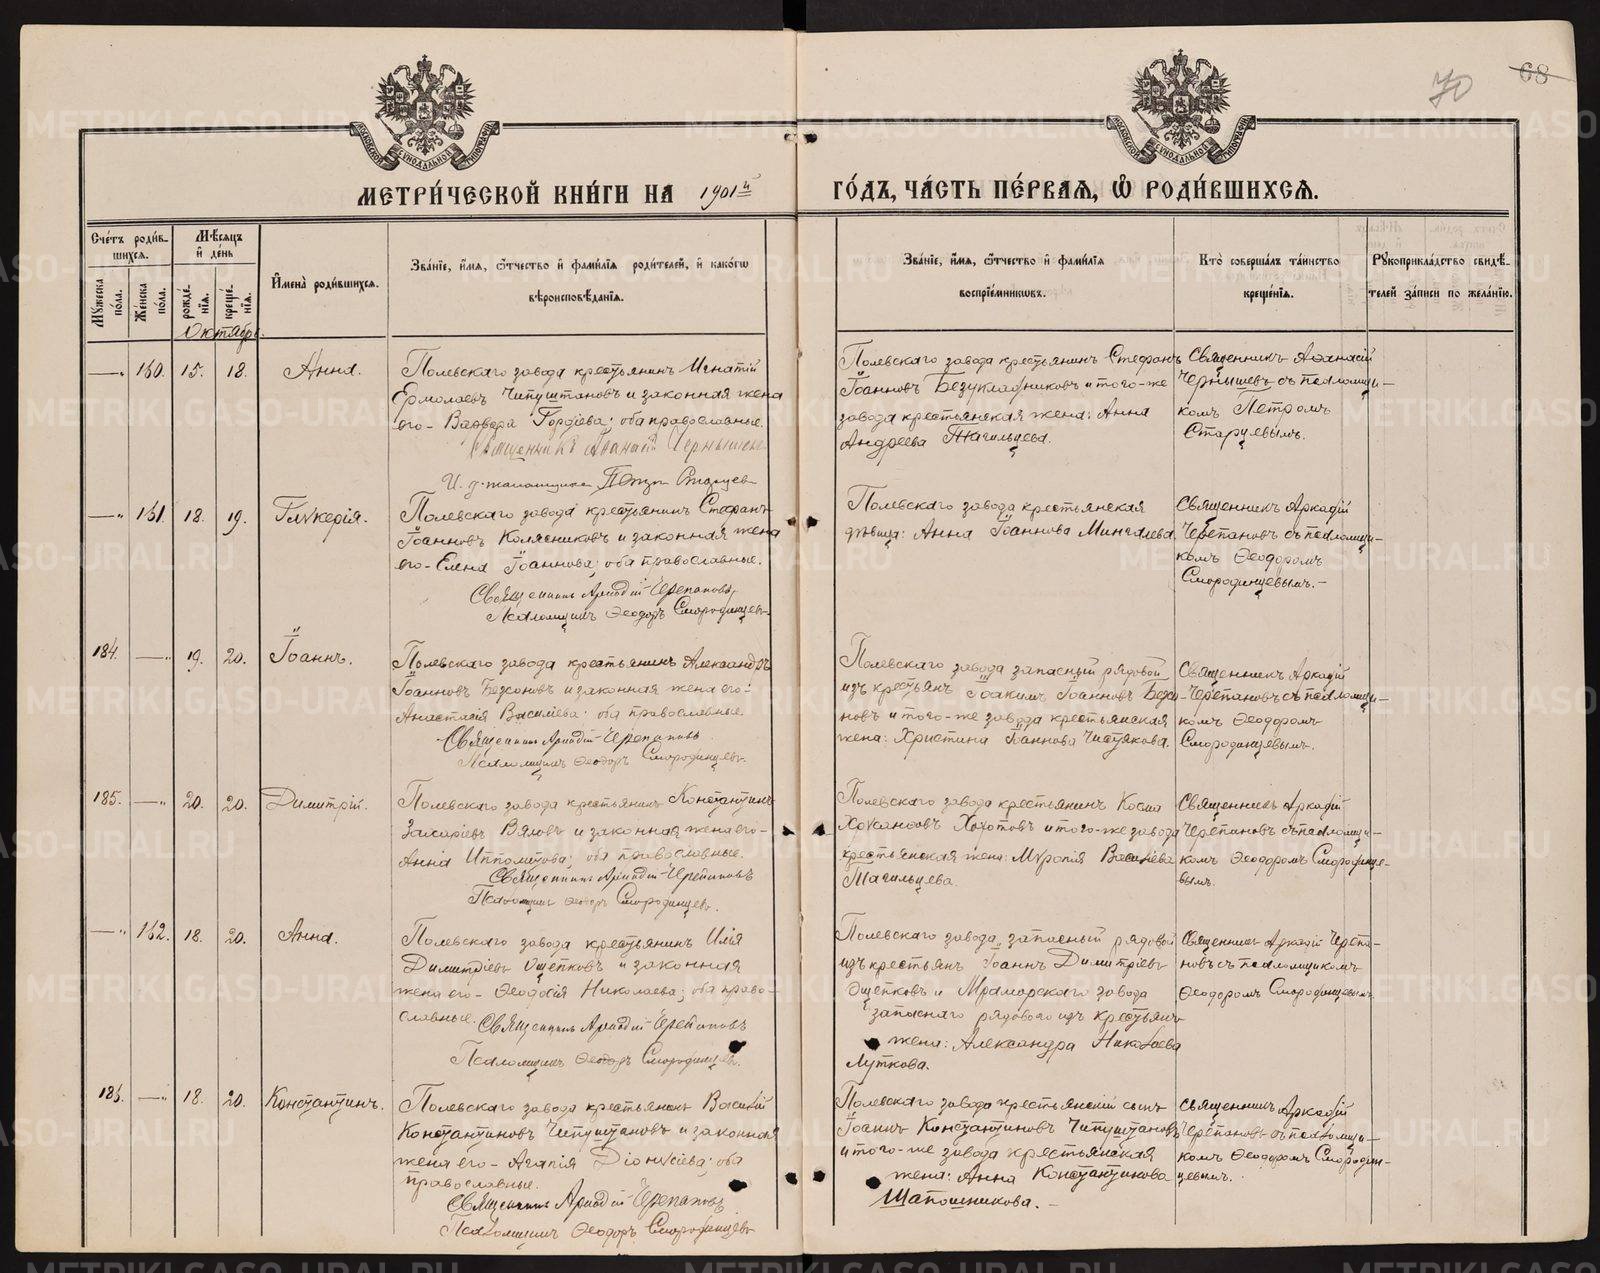 70
68
МЕТРИ́ЧЕСКОЙ КНИ́ГИ НА 1901й ГО́ДЪ, ЧА́СТЬ ПЕ́РВАѦ, Ѽ РОДИ́ВШИХСѦ.
Сче́тъ роди́в-
шихся.
Мꙋ́жеска по́ла.
Же́нска по́ла.
Мѣ́сяцъ
и҆ де́нь
рожде́нїя.
креще́нїя.
И҆мена̀ роди́вшихся.
Зва́нїе, и҆́мя, ѻ҆́тчество и҆ фами́лїя роди́телей, и҆ како́гѡ
вѣроисповѣ́данїя.
Зва́нїе, и҆́мя, ѻ҆́тчество и҆ фами́лїя
воспрїе́мникѡвъ.
Кто̀ соверша́лъ та́инство
креще́нїя.
Рꙋкоприкла́дство свидѣ́-
телей за́писи по жела́нїю.
Октябрь.
—„ 160. 15. 18. Анна.
Полевскаго завода крестьянинъ Игнатій
Ермолаевъ Чипуштановъ и законная жена
его- Варвара Гордіева; оба православные.
Священникъ Аѳанасій Чернышевъ
И. д. псаломщика Петръ Старцевъ
Полевскаго завода крестьянинъ Стефанъ
Іоанновъ Безукладниковъ и того-же
завода крестьянская жена: Анна
Андреева Тагильцева.
Священникъ Аѳанасій
Чернышевъ съ псаломщи-
комъ Петромъ
Старцевымъ.
—„ 161. 18. 19. Гликерія.
Полевскаго завода крестьянинъ Стефанъ
Іоанновъ Колясниковъ и законная жена
его- Елена Іоаннова; оба православные.
Священникъ Аркадій Черепановъ
Псаломщикъ Ѳеодоръ Смородинцевъ.
Полевскаго завода крестьянская
дѣвица: Анна Іоаннова Мингалева.
Священникъ Аркадій
Черепановъ съ псаломщи-
комъ Ѳеодоромъ
Смородинцевымъ.-
184. —„ 19. 20. Іоаннъ.
Полевскаго завода крестьянинъ Александръ
Іоанновъ и законная жена его-
Анастасія Василіева; оба православные.
Священникъ Аркадій Черепановъ
Псаломщикъ Ѳеодоръ Смородинцевъ.
Полевскаго завода запасный рядовой
изъ крестьянъ Іоакимъ Іоанновъ
новъ и того-же завода крестьянская
жена: Христина Іоаннова Чистякова.
Священникъ Аркадій
Черепановъ съ псаломщи-
комъ Ѳеодоромъ
Смородинцевымъ.
185. —„ 20. 20. Димитрій.
Полевскаго завода крестьянинъ Константинъ
Захаріевъ Вяловъ и законная жена его-
Анна Ипполитова; оба православные.
Священникъ Аркадій Черепановъ
Псаломщикъ Ѳеодоръ Смородинцевъ.
Полевскаго завода крестьянинъ Косма
Хохотовъ и того-же завода
крестьянская жена: Мѵропія Василіева
Тагильцева.
Священникъ Аркадій
Черепановъ съ псаломщи-
комъ Ѳеодоромъ Смородинце-
вымъ.
—„ 162. 18. 20. Анна.
Полевскаго завода крестьянинъ Илія
Димитріевъ Ощепковъ и законная
жена его- Ѳеодосія Николаева; оба право-
славные. Священникъ Аркадій Черепановъ
Псаломщикъ Ѳеодоръ Смородинцевъ.
Полевскаго завода запасный рядовой
изъ крестьянъ Іоаннъ Димитріевъ
Ощепковъ и Мраморскаго завода
запаснаго рядового изъ крестьянъ
жена: Александра Николаева
Луткова.
Священникъ Аркадій Черепа-
новъ съ псаломщикомъ
Ѳеодоромъ Смородинцевымъ.
186. —„ 18. 20. Константинъ.
Полевскаго завода крестьянинъ Василій
Константиновъ Чипуштановъ и законная
жена его- Агапія Діонисіева; оба
православные.
Священникъ Аркадій Черепановъ
Псаломщикъ Ѳеодоръ Смородинцевъ
Полевскаго завода крестьянскій сынъ
Іоаннъ Константиновъ Чипуштановъ
и того-же завода крестьянская
жена: Анна Константинова
Шапошникова.-
Священникъ Аркадій
Черепановъ съ псаломщи-
комъ Ѳеодоромъ Смородин-
цевымъ.
METRIKI.GASO-URAL.RU